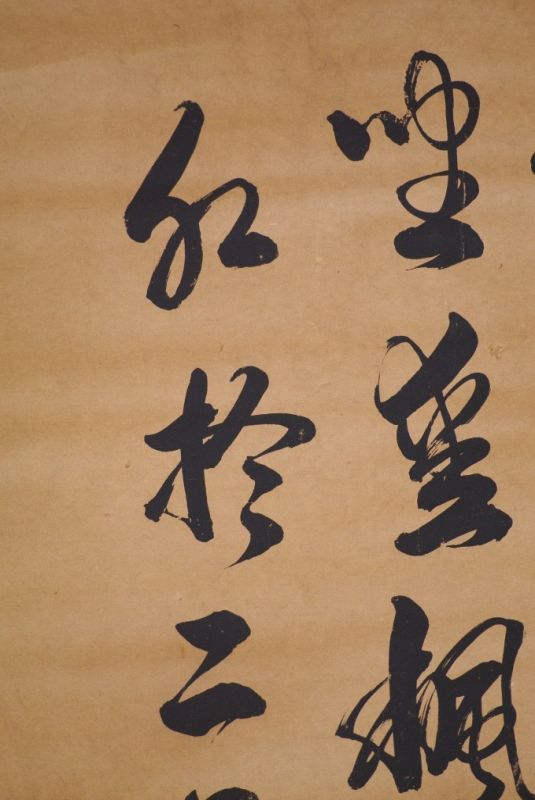 坐愛楓
紅於二